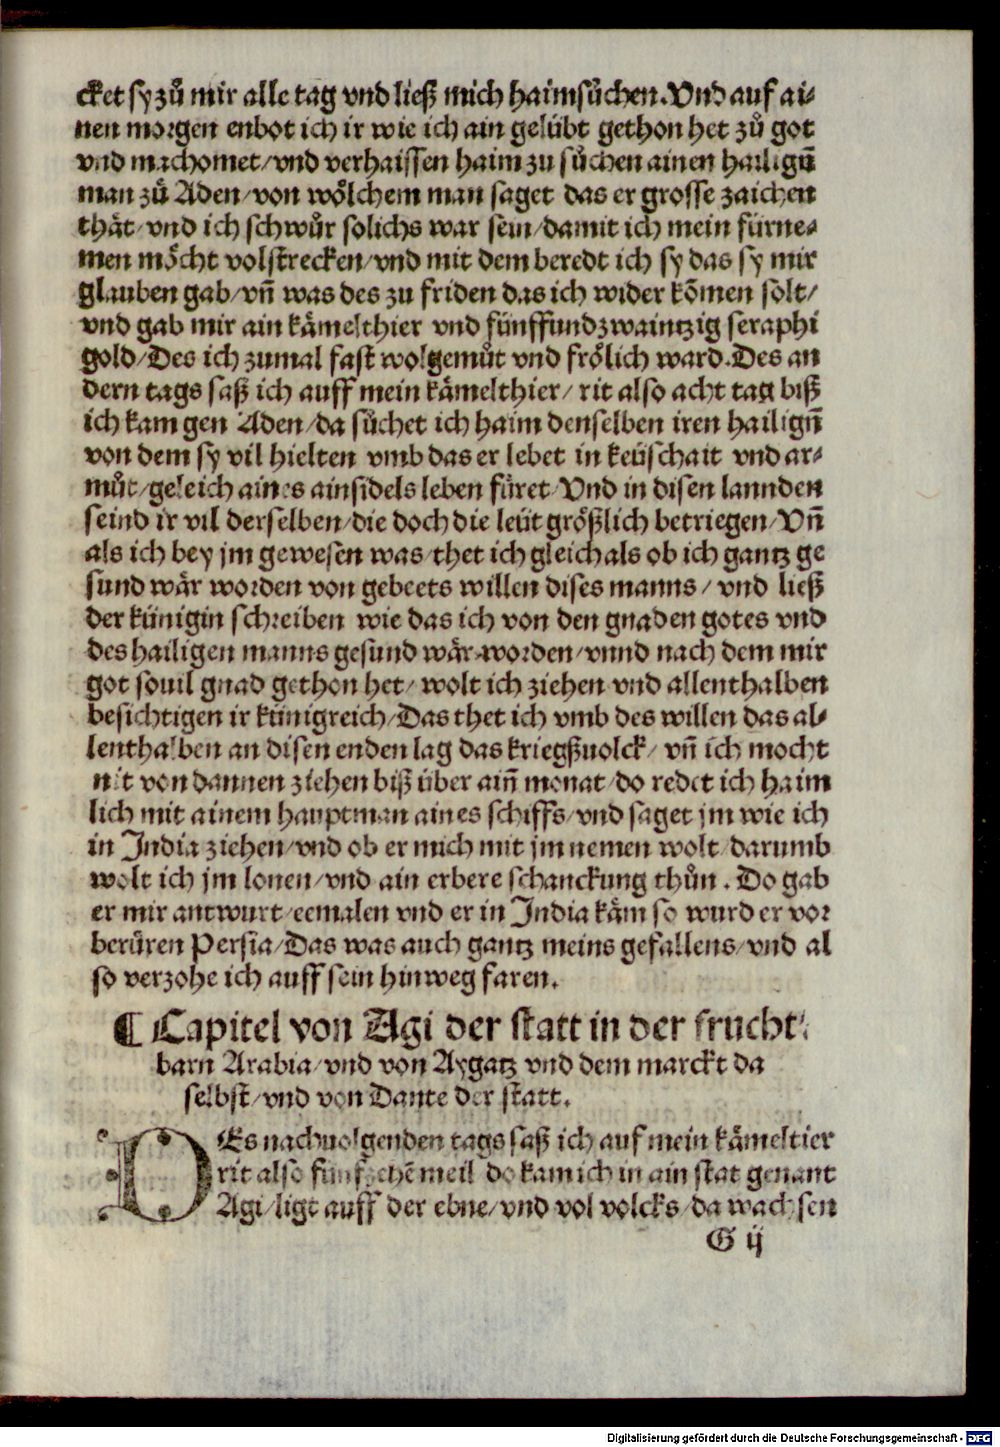 cket sy zů mir alle tag vnd ließ mich haimsůchen. Vnd auf ai⸗
nen morgen enbot ich ir wie ich ain gelübt gethon het zů got
vnd machomet/vnd verhaissen haim zu sůchen ainen hailigū
man zů Aden/von wölchem man saget das er grosse zaichen
thät/vnd ich schwůr solichs war sein/damit ich mein fürne⸗
men möcht volstrecken/vnd mit dem beredt ich sy das sy mir
glauben gab/vn̄ was des zu friden das ich wider kōmen solt/
vnd gab mir ain kämelthier vnd fünffundzwaintzig seraphi
gold/Des ich zumal fast wolgemůt vnd frölich ward. Des an
dern tags saß ich auff mein kämelthier/ rit also acht tag biß
ich kam gen Aden/da sůchet ich haim denselben iren hailign̄
von dem sy vil hielten vmb das er lebet in keüschait vnd ar⸗
můt/geleich aines ainsidels leben füret/Vnd in disen lannden
seind ir vil derselben/die doch die leüt größlich betriegen/Vn̄
als ich bey jm gewesen was/thet ich gleich als ob ich gantz ge
sund wär worden von gebeets willen dises manns/ vnd ließ
der künigin schreiben wie das ich von den gnaden gotes vnd
des hailigen manns gesund wär worden/vnnd nach dem mir
got souil gnad gethon het/ wolt ich ziehen vnd allenthalben
besichtigen ir künigreich/Das thet ich vmb des willen das al⸗
lenthalben an disen enden lag das kriegßuolck/ vn̄ ich mocht
nit von dannen ziehen biß über ain̄ monat/do redet ich haim
lich mit ainem hauptman aines schiffs/vnd saget jm wie ich
in India ziehen/vnd ob er mich mit jm nemen wolt/darumb
wolt ich jm lonen/vnd ain erbere schanckung thůn. Do gab
er mir antwurt/eemalen vnd er in India käm so wurd er vor
berüren Persia/Das was auch gantz meins gefallens/vnd al
so verzohe ich auff sein hinweg faren.
¶ Capitel von Agi der statt in der frucht⸗
barn Arabia/vnd von Aygatz vnd dem marckt da
selbst/vnd von Dante der statt.
DEs nachuolgenden tags saß ich auf mein kämeltier
rit also fünfzehē meil do kam ich in ain stat genant
Agi/ligt auff der ebne/vnd vol volcks/da wachsen
G ij
Digitalisierung gefördert durch die Deutsche Forschungsgemeinschaft - DFG